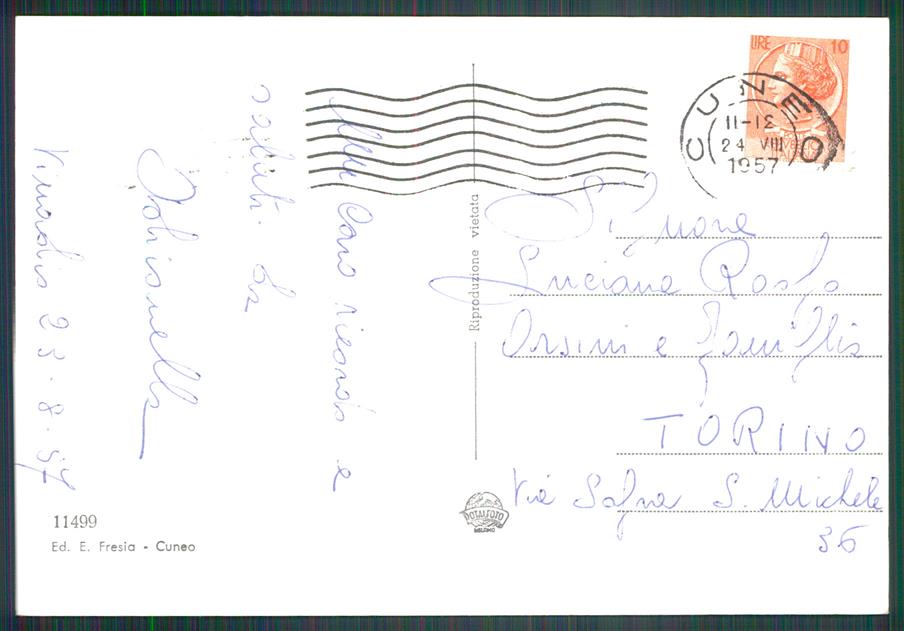 Vinadio 23.8.57
Caro ricordo e
saluti da
LIRE 10
CUNEO
11-12
24 VIII
1957
Signora
Luciana
Orsini e Famiglia
TORINO
Via Sagra S. Michele
36
Riproduzione vietata
DOTALFOTO
MILANO
11499
Ed. E. Fresia - Cuneo